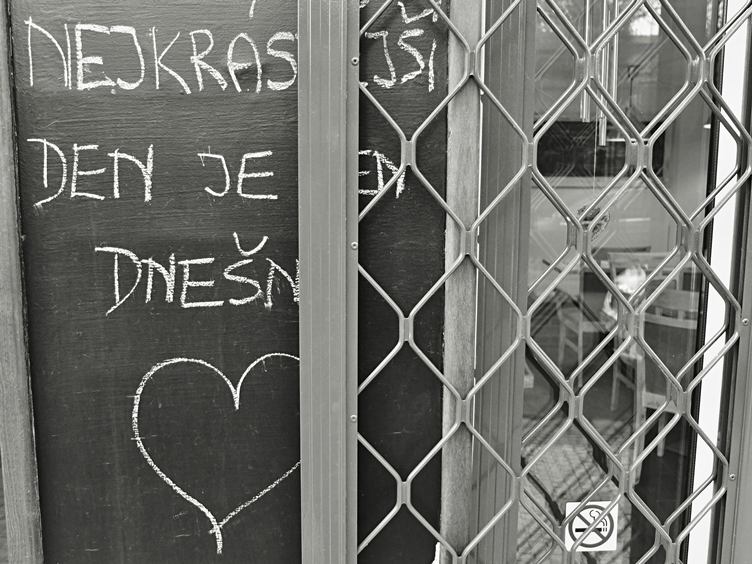 NEJKRÁS JŠÍ
DEN JE EN
DNEŠN